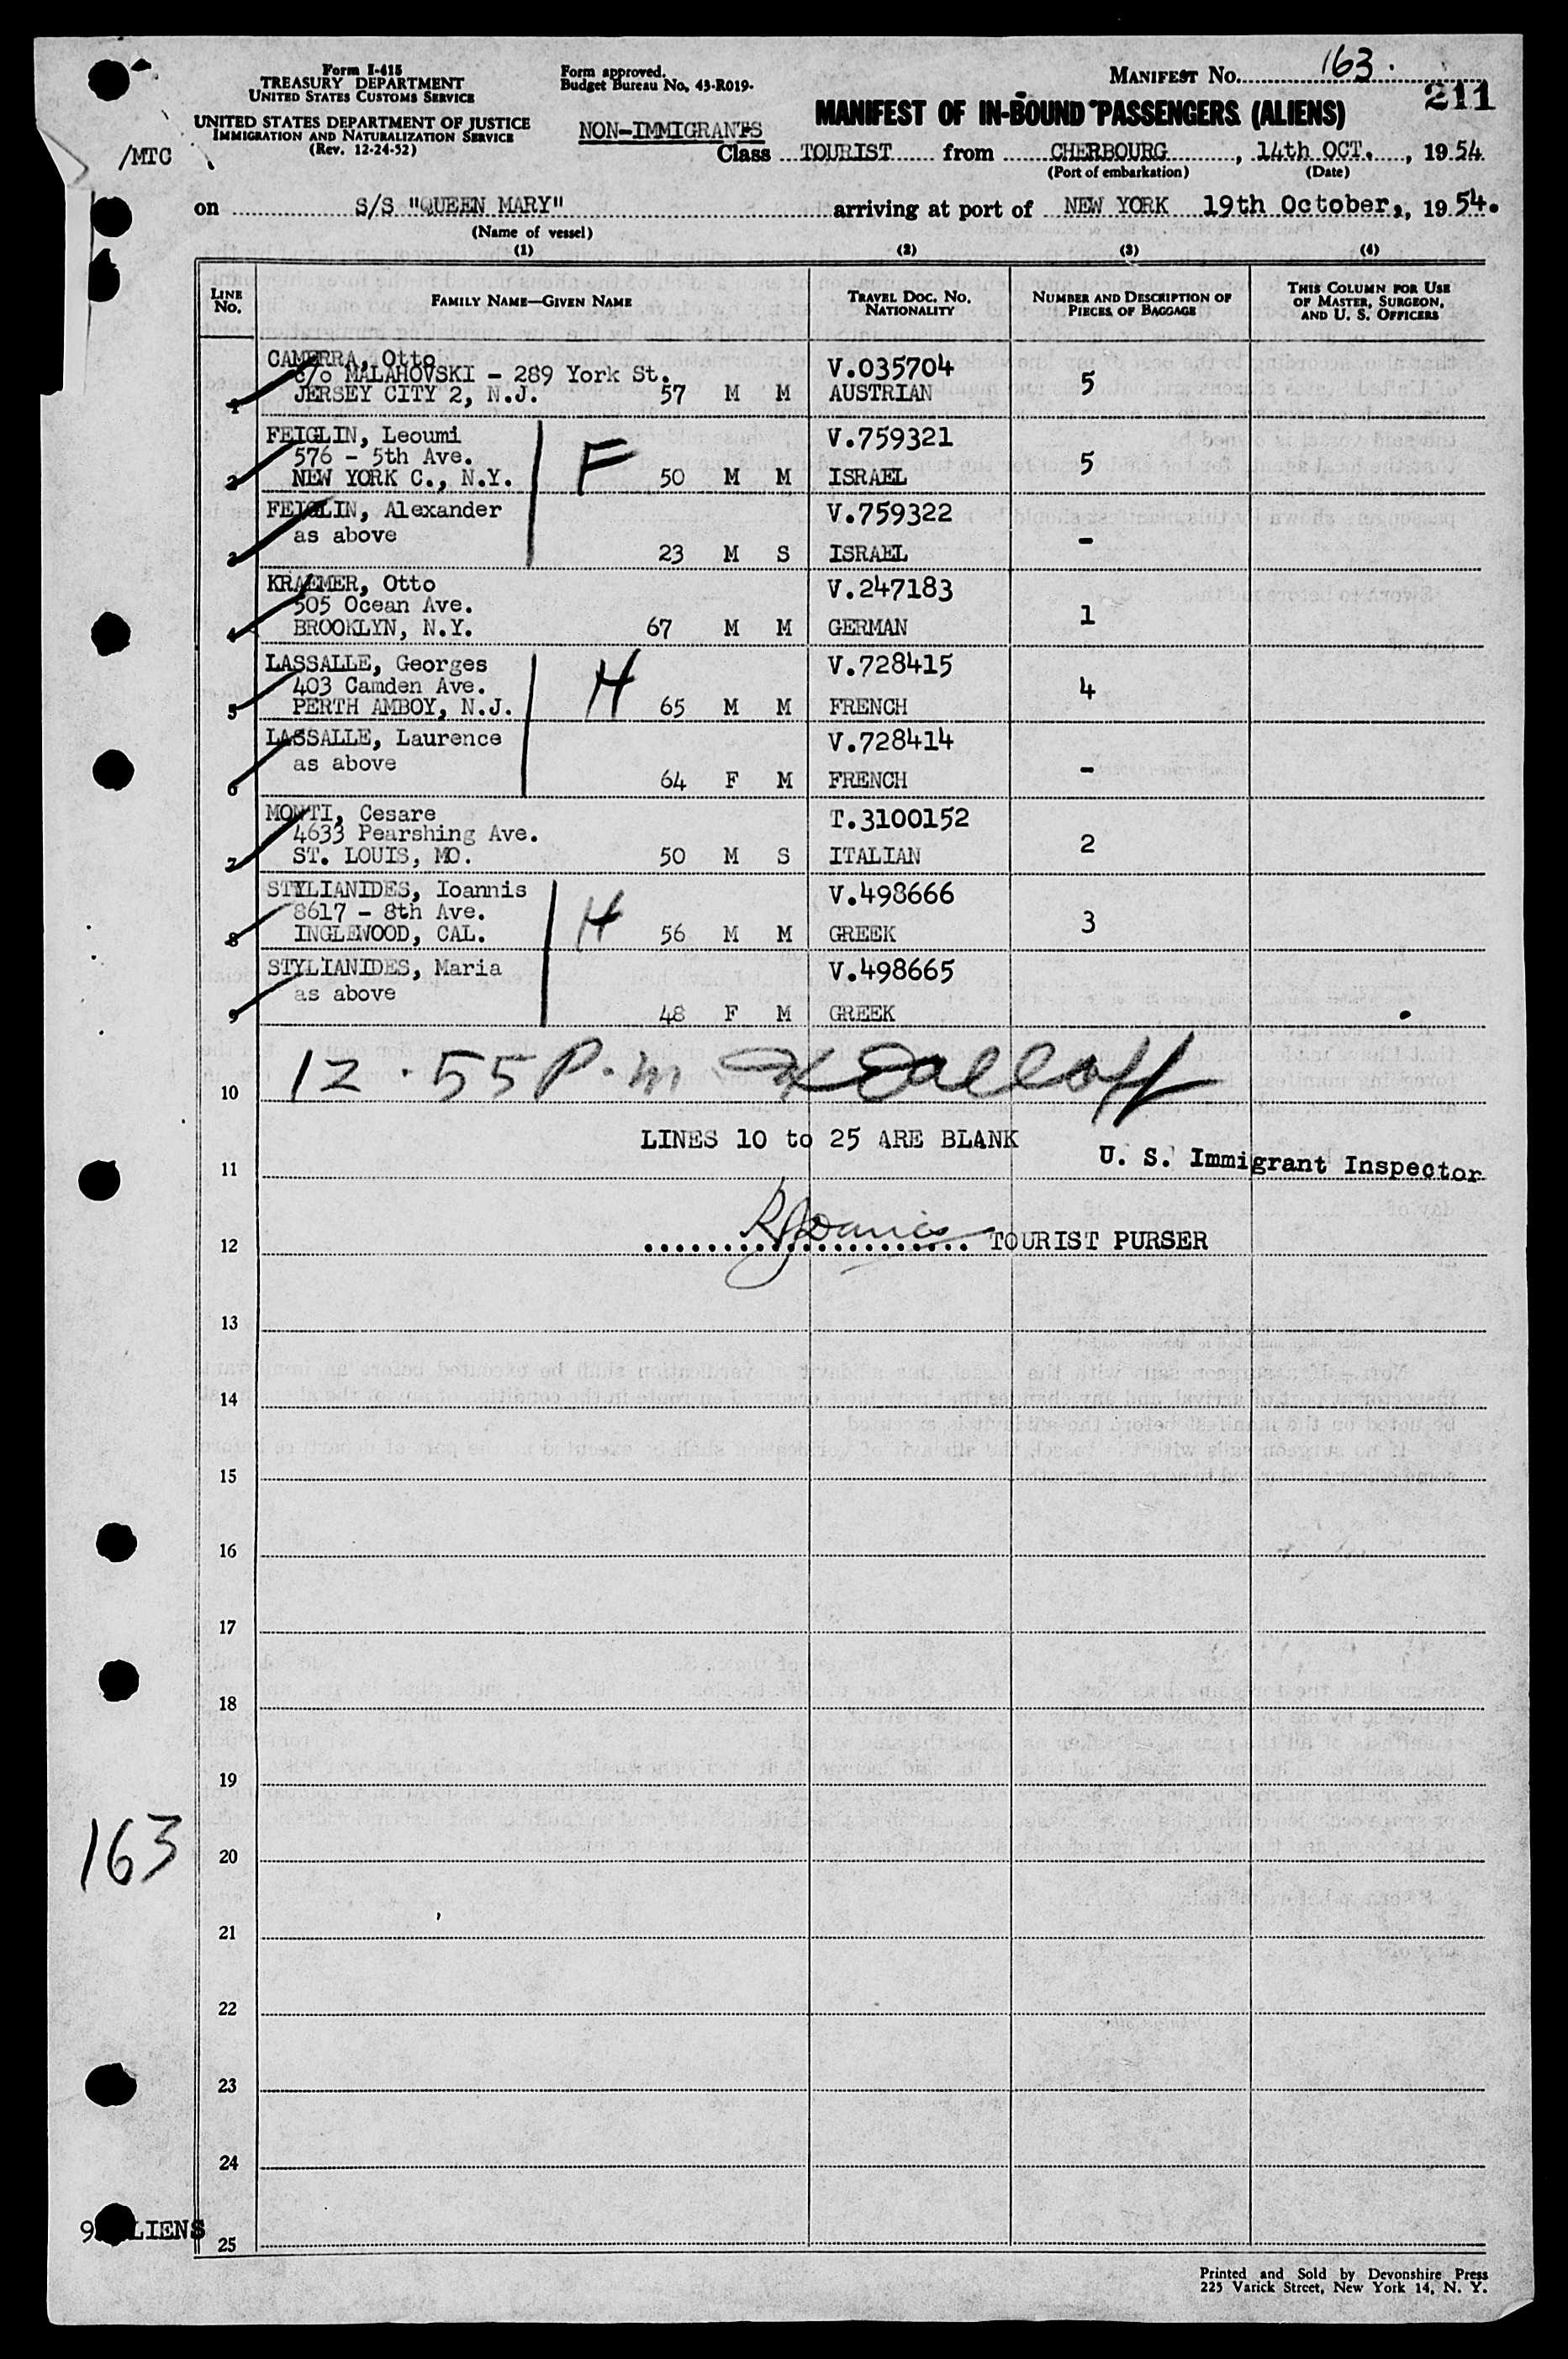 Form I-415
TREASURY DEPARTMENT
UNITED STATES CUSTOMS SERVICE
UNITED STATES DEPARTMENT OF JUSTICE
IMMIGRATION AND NATURALIZATION SERVICE
(Rev. 12-24-52)
/MTC
Form approved.
Budget Bureau No. 43-R019.
NON-IMMIGRANTS
MANIFEST NO. 163.
211
MANIFEST OF IN-BOUND PASSENGERS (ALIENS)
Class TOURIST from CHERBOURG, 14th OCT., 1954
(Port of embarkation) (Date)
on S/S "QUEEN MARY" arriving at port of NEW YORK 19th October,, 1954.
(Name of vessel)
(1) (2) (3) (4)
LINE No. FAMILY NAME—GIVEN NAME TRAVEL DOC. NO. NATIONALITY NUMBER AND DESCRIPTION OF PIECES OF BAGGAGE THIS COLUMN FOR USE OF MASTER, SURGEON, AND U. S. OFFICERS
CAMERRA, Otto V.035704
c/o MALAHOVSKI - 289 York St. 5
1 JERSEY CITY 2, N.J. 57 M M AUSTRIAN
FEIGLIN, Leoumi V.759321
576 - 5th Ave. F 5
2 NEW YORK C., N.Y. 50 M M ISRAEL
FEIGLIN, Alexander V.759322
as above -
3 23 M S ISRAEL
KRAEMER, Otto V.247183
505 Ocean Ave. 1
4 BROOKLYN, N.Y. 67 M M GERMAN
LASSALLE, Georges V.728415
403 Camden Ave. H 4
5 PERTH AMBOY, N.J. 65 M M FRENCH
LASSALLE, Laurence V.728414
as above -
6 64 F M FRENCH
MONTI, Cesare T.3100152
4633 Pearshing Ave. 2
7 ST. LOUIS, MO. 50 M S ITALIAN
STYLIANIDES, Ioannis V.498666
8617 - 8th Ave. H 3
8 INGLEWOOD, CAL. 56 M M GREEK
STYLIANIDES, Maria V.498665
as above
9 48 F M GREEK
10 12.55 P.m
LINES 10 to 25 ARE BLANK
11 U. S. Immigrant Inspector
12 TOURIST PURSER
13
14
15
16
17
18
19
163
20
21
22
23
24
9 ALIENS
25
Printed and Sold by Devonshire Press
225 Varick Street, New York 14, N. Y.